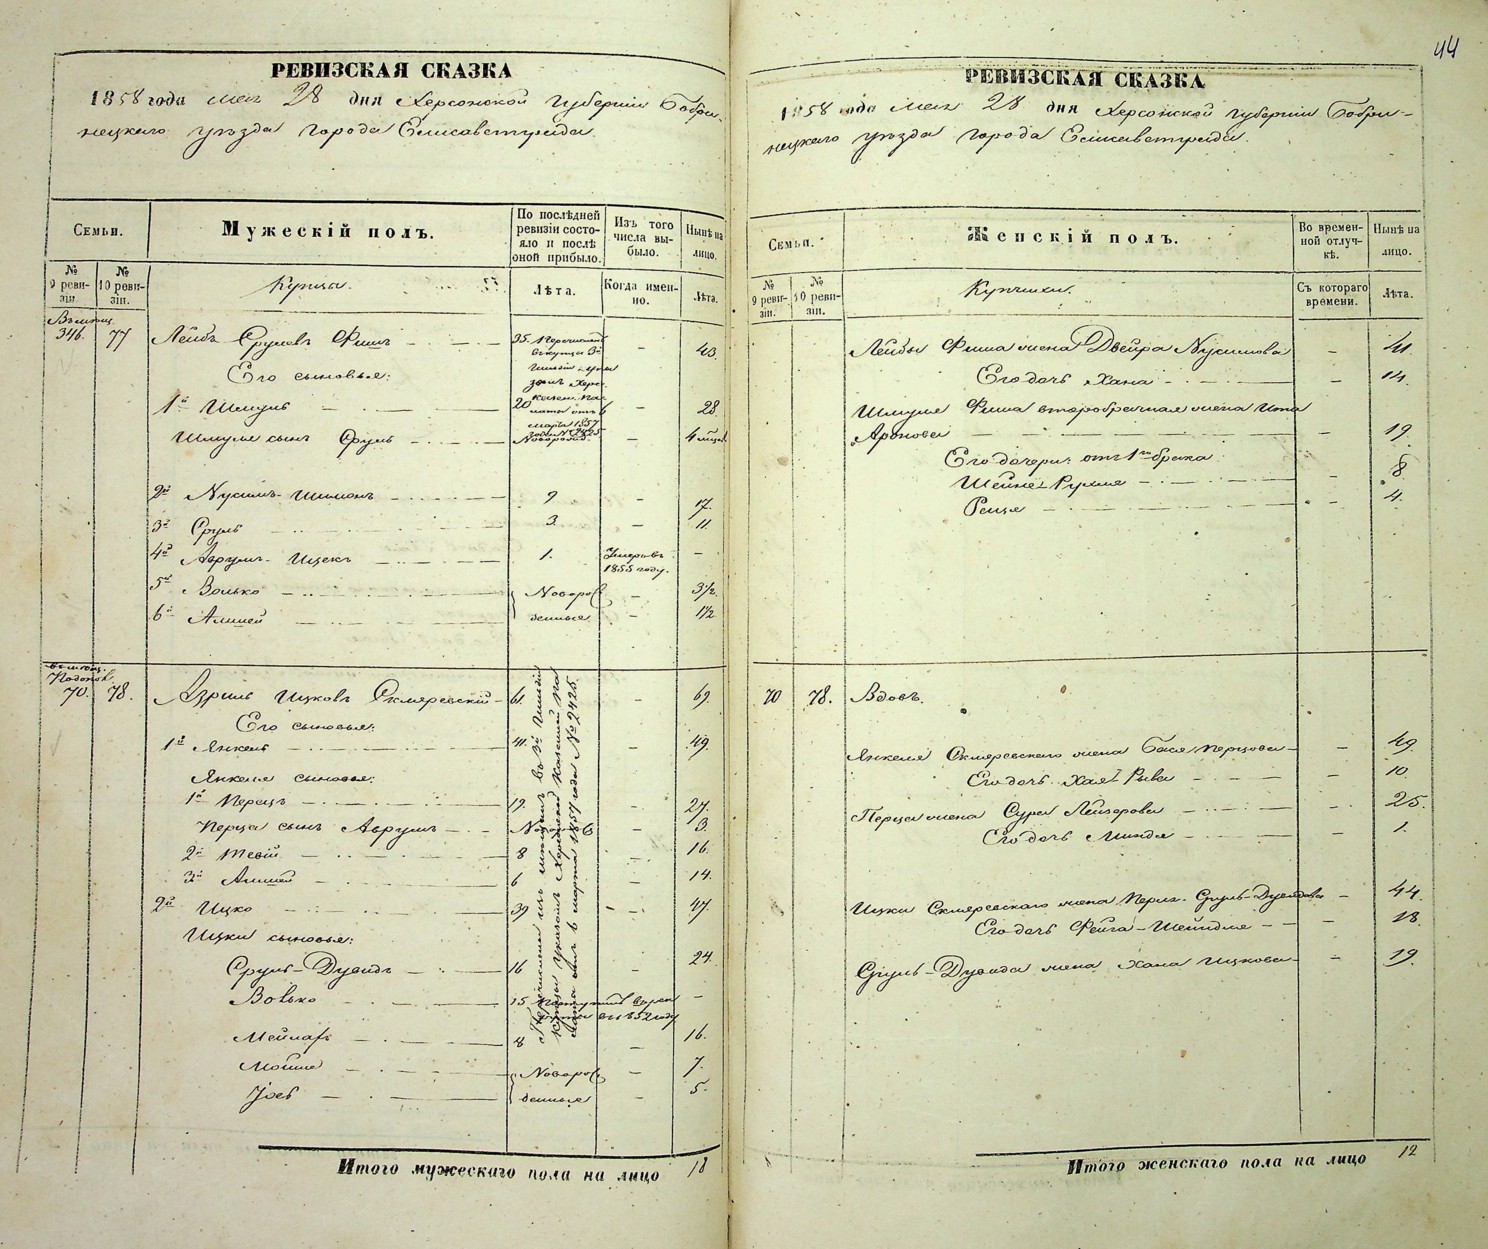 44
РЕВИЗСКАЯ СКАЗКА
1858 года мая 28 дня Херсонской Губернии Бобри-
нецкаго уезда города Елисаветграда.
Семьи.
Мужескій полъ.
По послѣдней ревизіи состо-
яло и послѣ оной прибыло.
Изъ того числа вы-
было.
Нынѣ на лицо.
№ 9 реви-
зіи.
№ 10 реви-
зіи.
Купцы.
Лѣта.
Когда имен-
но.
Лѣта.
346. 77 Лейбъ Срулевъ Фишъ 35. 43
Его сыновья:
1й Шмуль 20 28
Шмуля сынъ Сруль Новорожд. 4
2й Нусимъ-Шимонъ 9 17.
3й Сруль 3. 11.
4й Аврумъ-Ицекъ 1. Умеръ въ 1855 году.
5й Волько Новорож- 3½
6й Алшей денные 1½
70. 78. Азриль Ицковъ Склеревскій 61. 69.
Его сыновья:
1й Янкель 41. 49.
Янкеля сыновья:
1й Перецъ 19. 27.
Перца сынъ Аврумъ 3.
2й Тевій 8 16.
3й Алшей 6 14.
2й Ицко 39 47.
Ицки сыновья:
Сруль-Дувидъ 16 24.
Волько 15
Мейлахъ 8 16.
Мойше Новорож- 7.
Іосъ денные 5.
Перечислены изъ мѣщанъ въ 3й гильдіи
купцы указомъ Херсонской Казенной Па-
латы отъ 8 марта 1857 года № 2425.
Итого мужескаго пола на лицо 18
РЕВИЗСКАЯ СКАЗКА
1858 года мая 28 дня Херсонской Губерніи Бобри-
нецкаго уѣзда города Елисаветграда.
Семьи.
Женскій полъ.
Во времен-
ной отлуч-
кѣ.
Нынѣ на лицо.
№ 9 реви-
зіи.
№ 10 реви-
зіи.
Купчихи.
Съ котораго времени.
Лѣта.
Лейбы Фиша жена Двейра Нусимова 41
Его дочь Хана 14.
Шмуля Фиша второбрачная жена Ита
Аронова 19.
Его дочери: отъ 1го брака
Шейне-Рухля 8
Рейзя 4.
70 78. Вдовъ.
Янкеля Склеревскаго жена Бася Перцова 49.
Его дочь Хая-Рыва 10.
Перца жена Сура Лейзерова 25.
Его дочь Миндя 1.
Ицки Склеревскаго жена Перля Сруль-Дувидова 44.
Его дочь Фейга-Шейндля 18.
Сруль-Дувида жена Хана Ицкова 19.
Итого женскаго пола на лицо 12